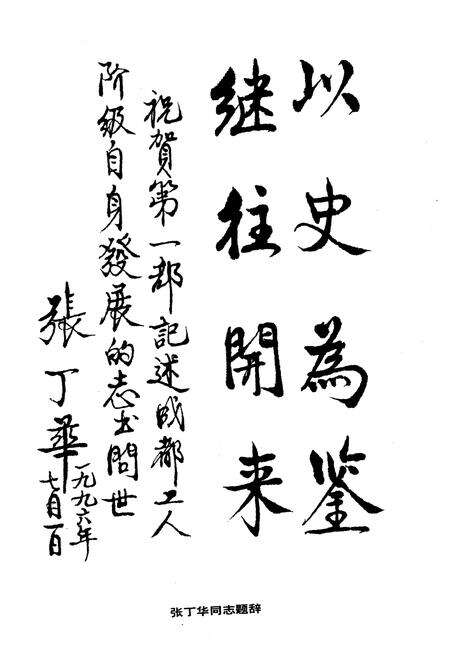 以史为鉴
继往開来
祝賀第一部記述成都工人
阶级自身發展的志书問世
張丁華
一九九六年
七月一日
张丁华同志题辞